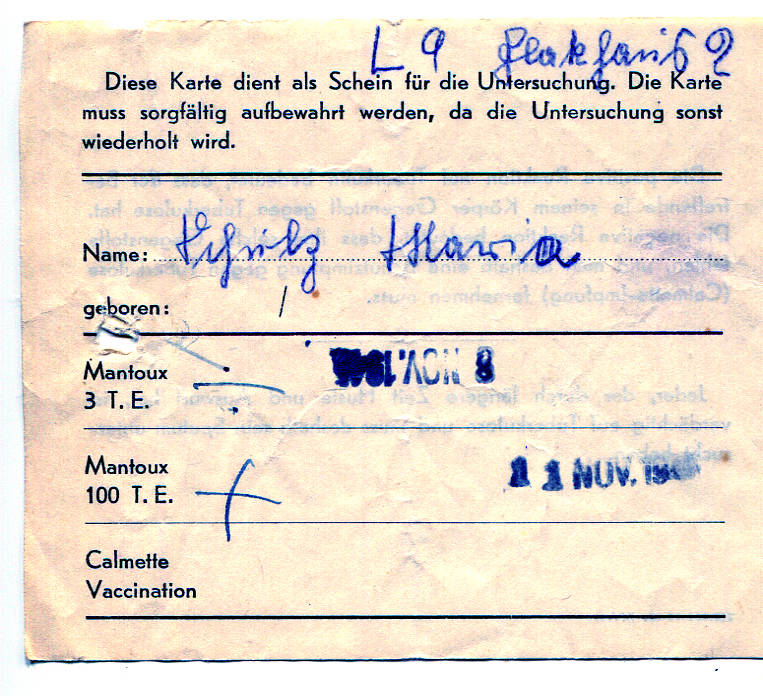 L 9
Diese Karte dient als Schein für die Untersuchung. Die Karte
muss sorgfältig aufbewahrt werden, da die Untersuchung sonst
wiederholt wird.
Name: Schulz Maria
geboren: /
Mantoux
3 T. E. 8 NOV.
Mantoux
100 T. E. + 11 NOV.
Calmette
Vaccination